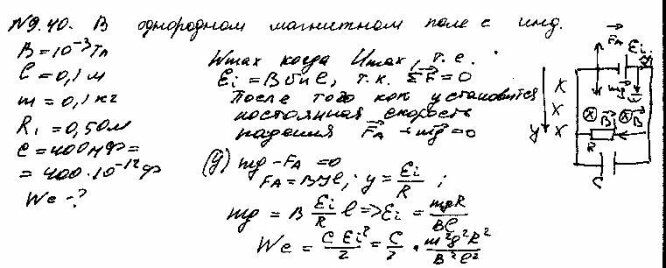 №9.40. В однородном магнитном поле с инд.
B = 10⁻³ Тл
l = 0,1 м
m = 0,1 кг
R₁ = 0,5 Ом
C = 400 пФ =
= 400·10⁻¹² Ф
Wc - ?
Wmax когда Umax, т.е.
Ei = Bυnl, т.к. ΣF = 0
После того как установится
постоянная скорость
падения F⃗A + mg⃗ = 0
(y) mg - FA = 0
FA = BYl; y = Ei/R ;
mg = B Ei/R l => Ei = mgR/Bl
Wc = C Ei²/2 = C/2 · m²g²R²/B²l²
F⃗A
Ei
y
x
x
x
B⃗
R
C